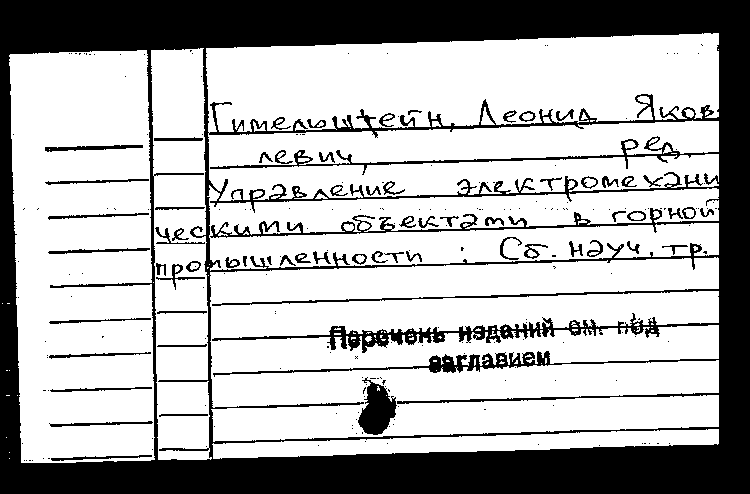 Гимельштейн, Леонид Яков-
левич, ред.
Управление электромехани
ческими объектами в горной
промышленности : Сб. науч. тр.
Перечень изданий см. под
заглавием